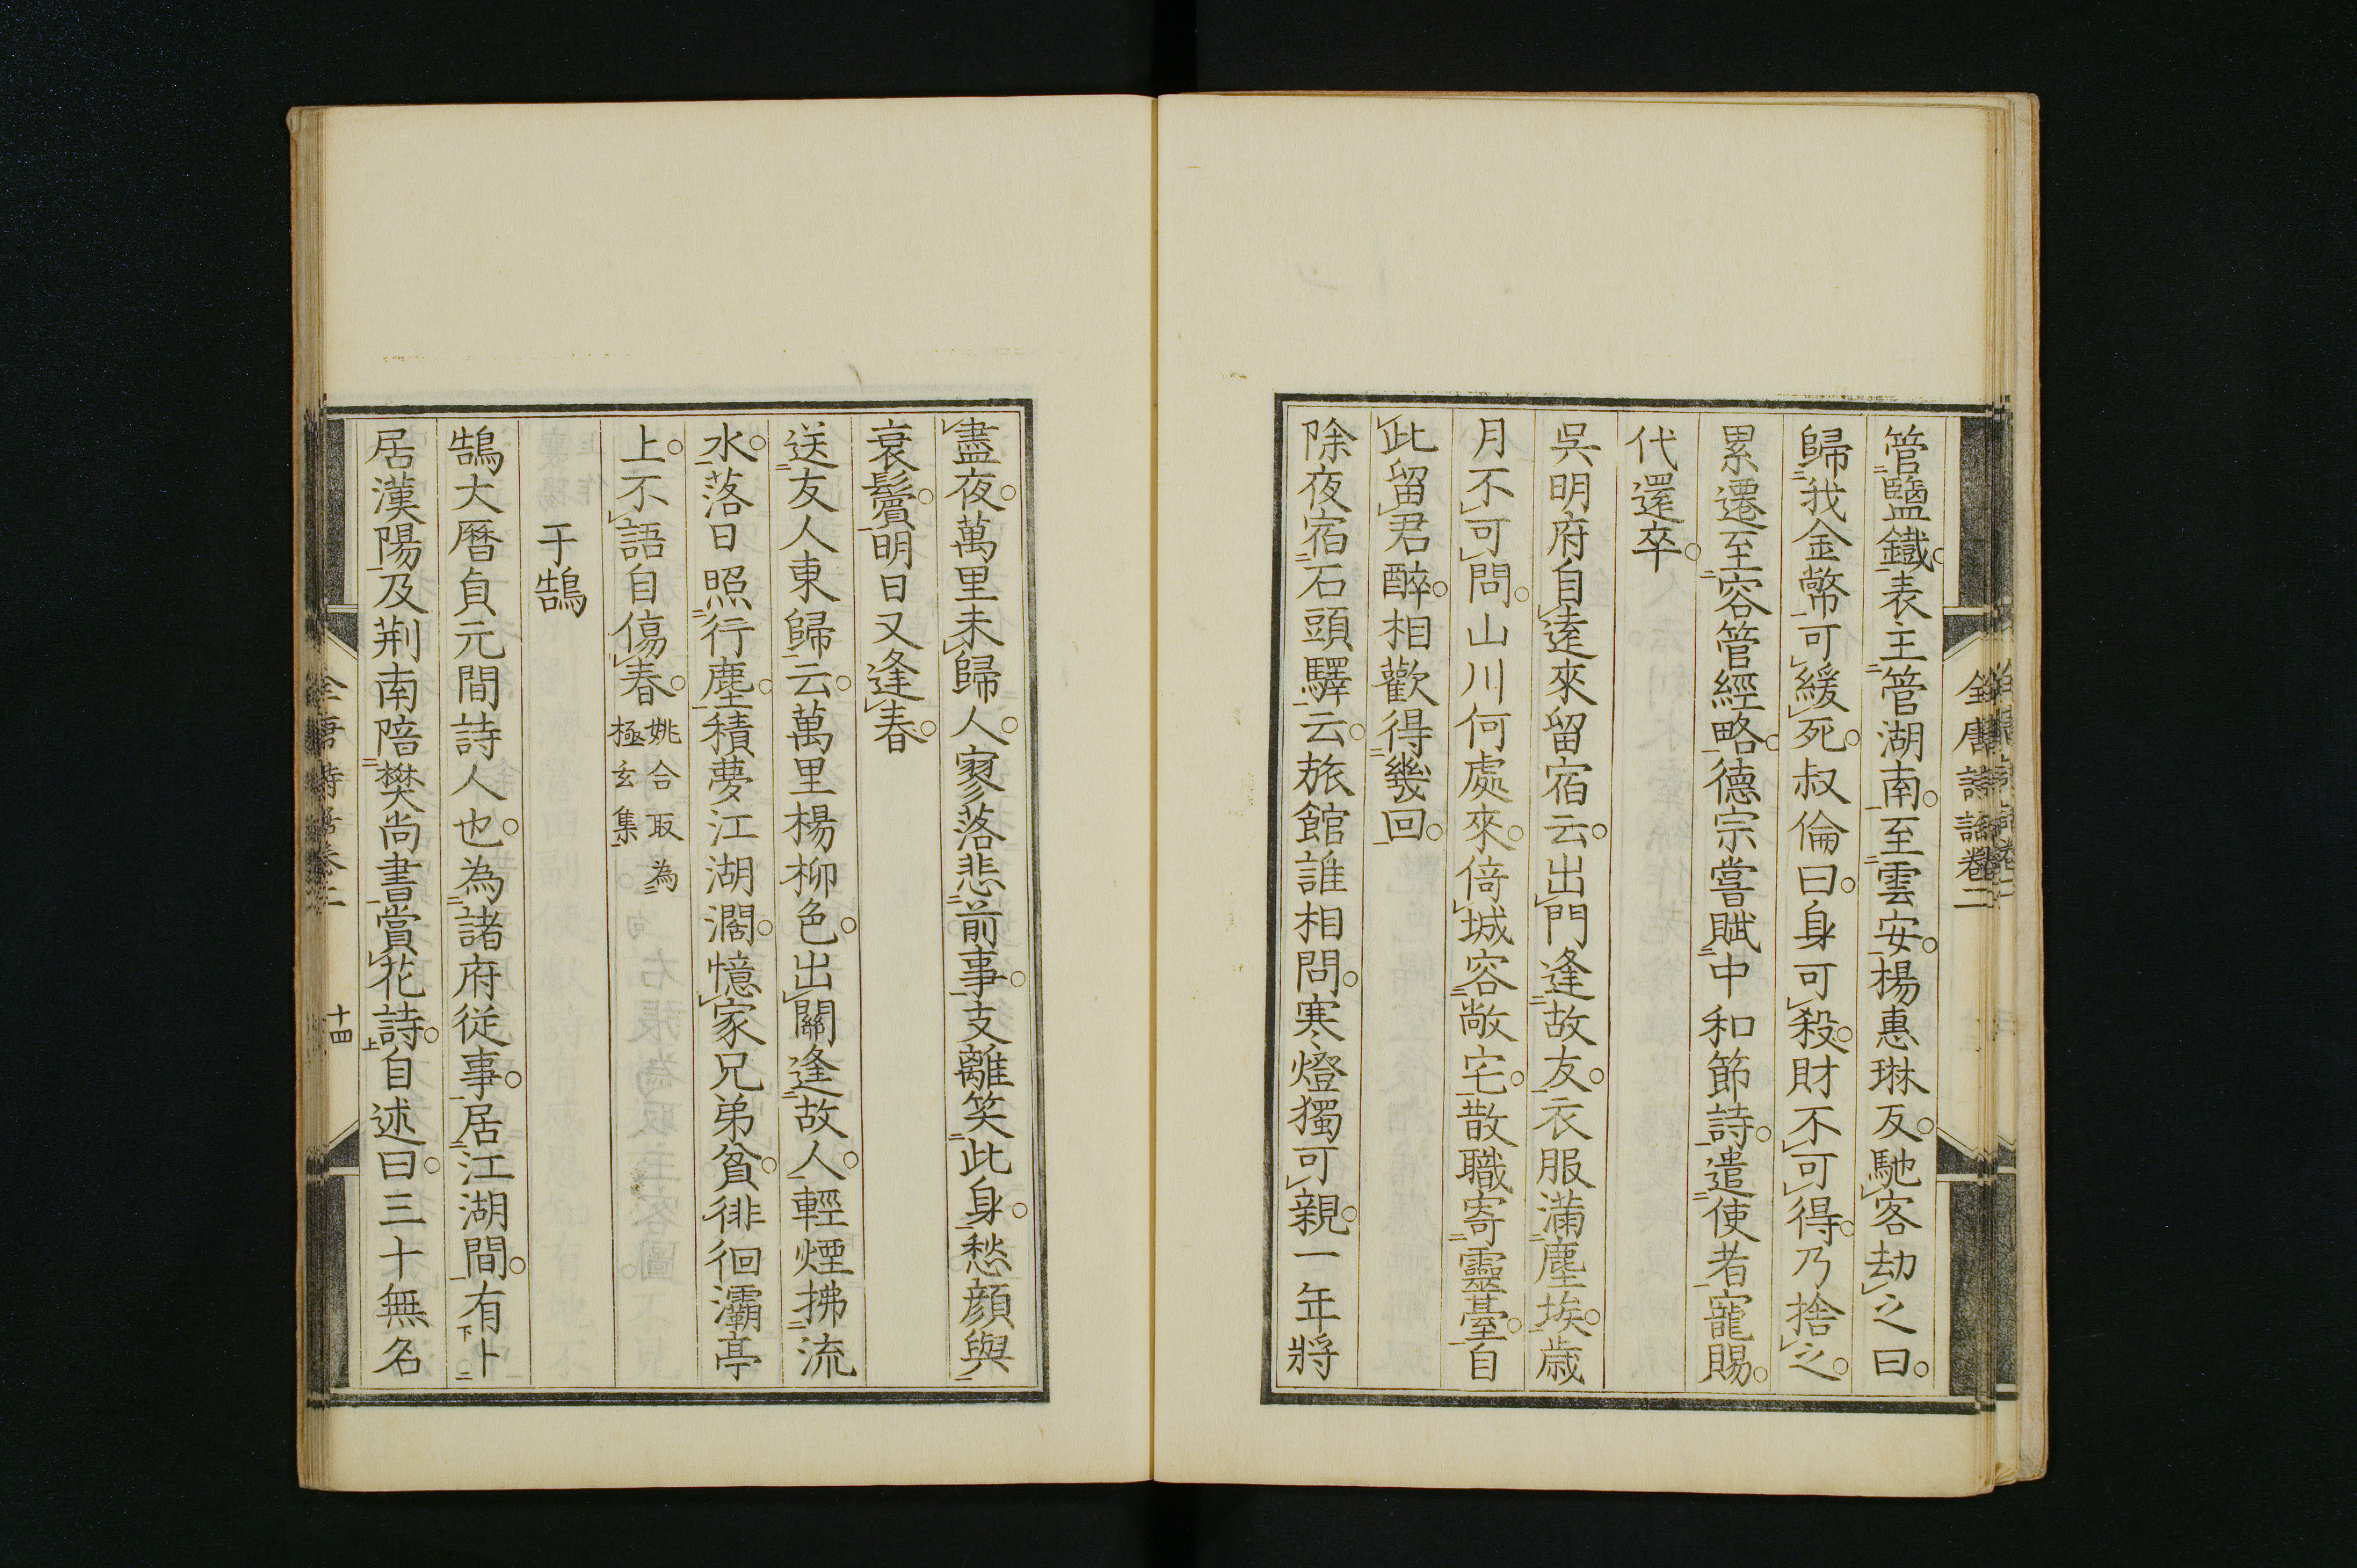 全唐詩話卷二
管鹽鐵表主管湖南至雲安楊惠琳反馳客劫之曰
歸我金幣可緩死叔倫曰身可殺財不可得乃捨之
累遷至容管經略德宗嘗賦中和節詩遣使者寵賜
代還卒
吳明府自遠來留宿云出門逢故友衣服滿塵埃歲
月不可問山川何處來倚城容敞宅散職寄靈臺自
此留君醉相歡得幾回
除夜宿石頭驛云旅館誰相問寒燈獨可親一年將
盡夜萬里未歸人寥落悲前事支離笑此身愁顏與
衰鬢明日又逢春
送友人東歸云萬里楊柳色出關逢故人輕煙拂流
水落日照行塵積夢江湖濶憶家兄弟貧徘徊灞亭
上不語自傷春姚合取為
極玄集
于鵠
鵠大曆貞元間詩人也為諸府從事居江湖間有卜
居漢陽及荆南陪樊尚書賞花詩自述曰三十無名
全唐詩話卷二
十四